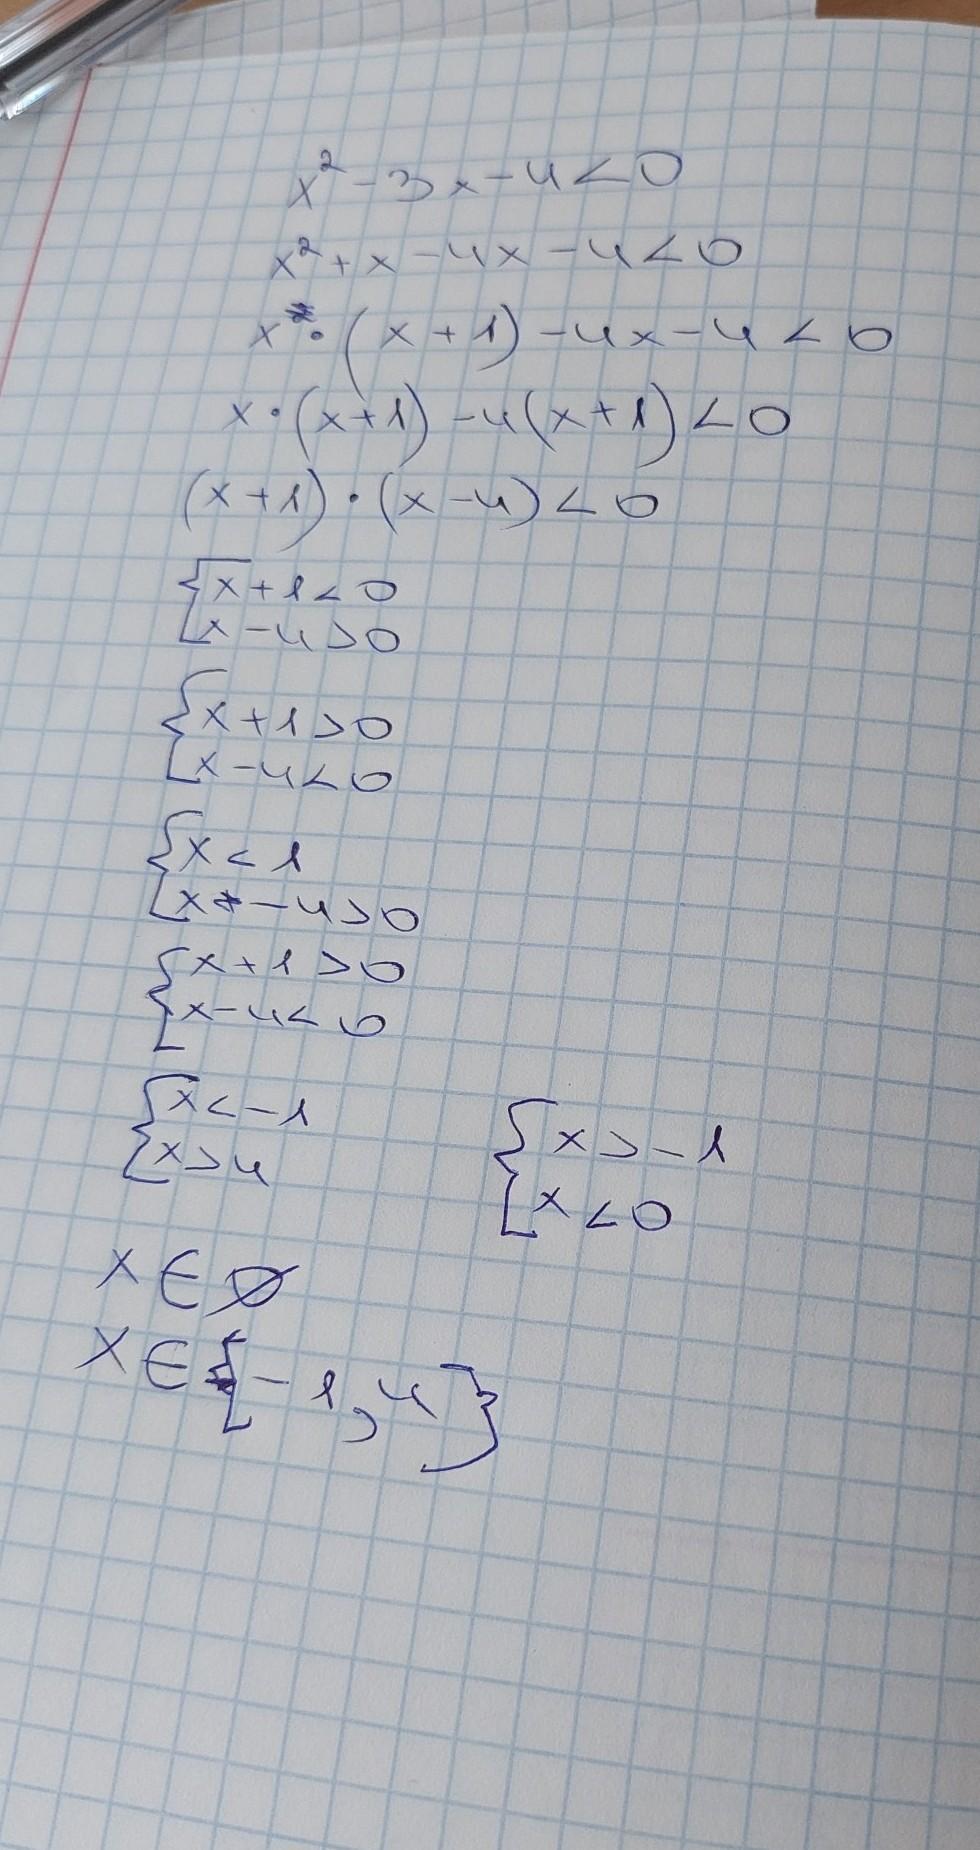 x² - 3x - 4 < 0
x² + x - 4x - 4 < 0
x · (x + 1) - 4x - 4 < 0
x · (x + 1) - 4(x + 1) < 0
(x + 1) · (x - 4) < 0
{ x + 1 < 0
x - 4 > 0
{ x + 1 > 0
x - 4 < 0
{ x < 1
x - 4 > 0
{ x + 1 > 0
x - 4 < 0
{ x < -1
x > 4
{ x > -1
x < 0
x ∈ ∅
x ∈ { -1, 4 }